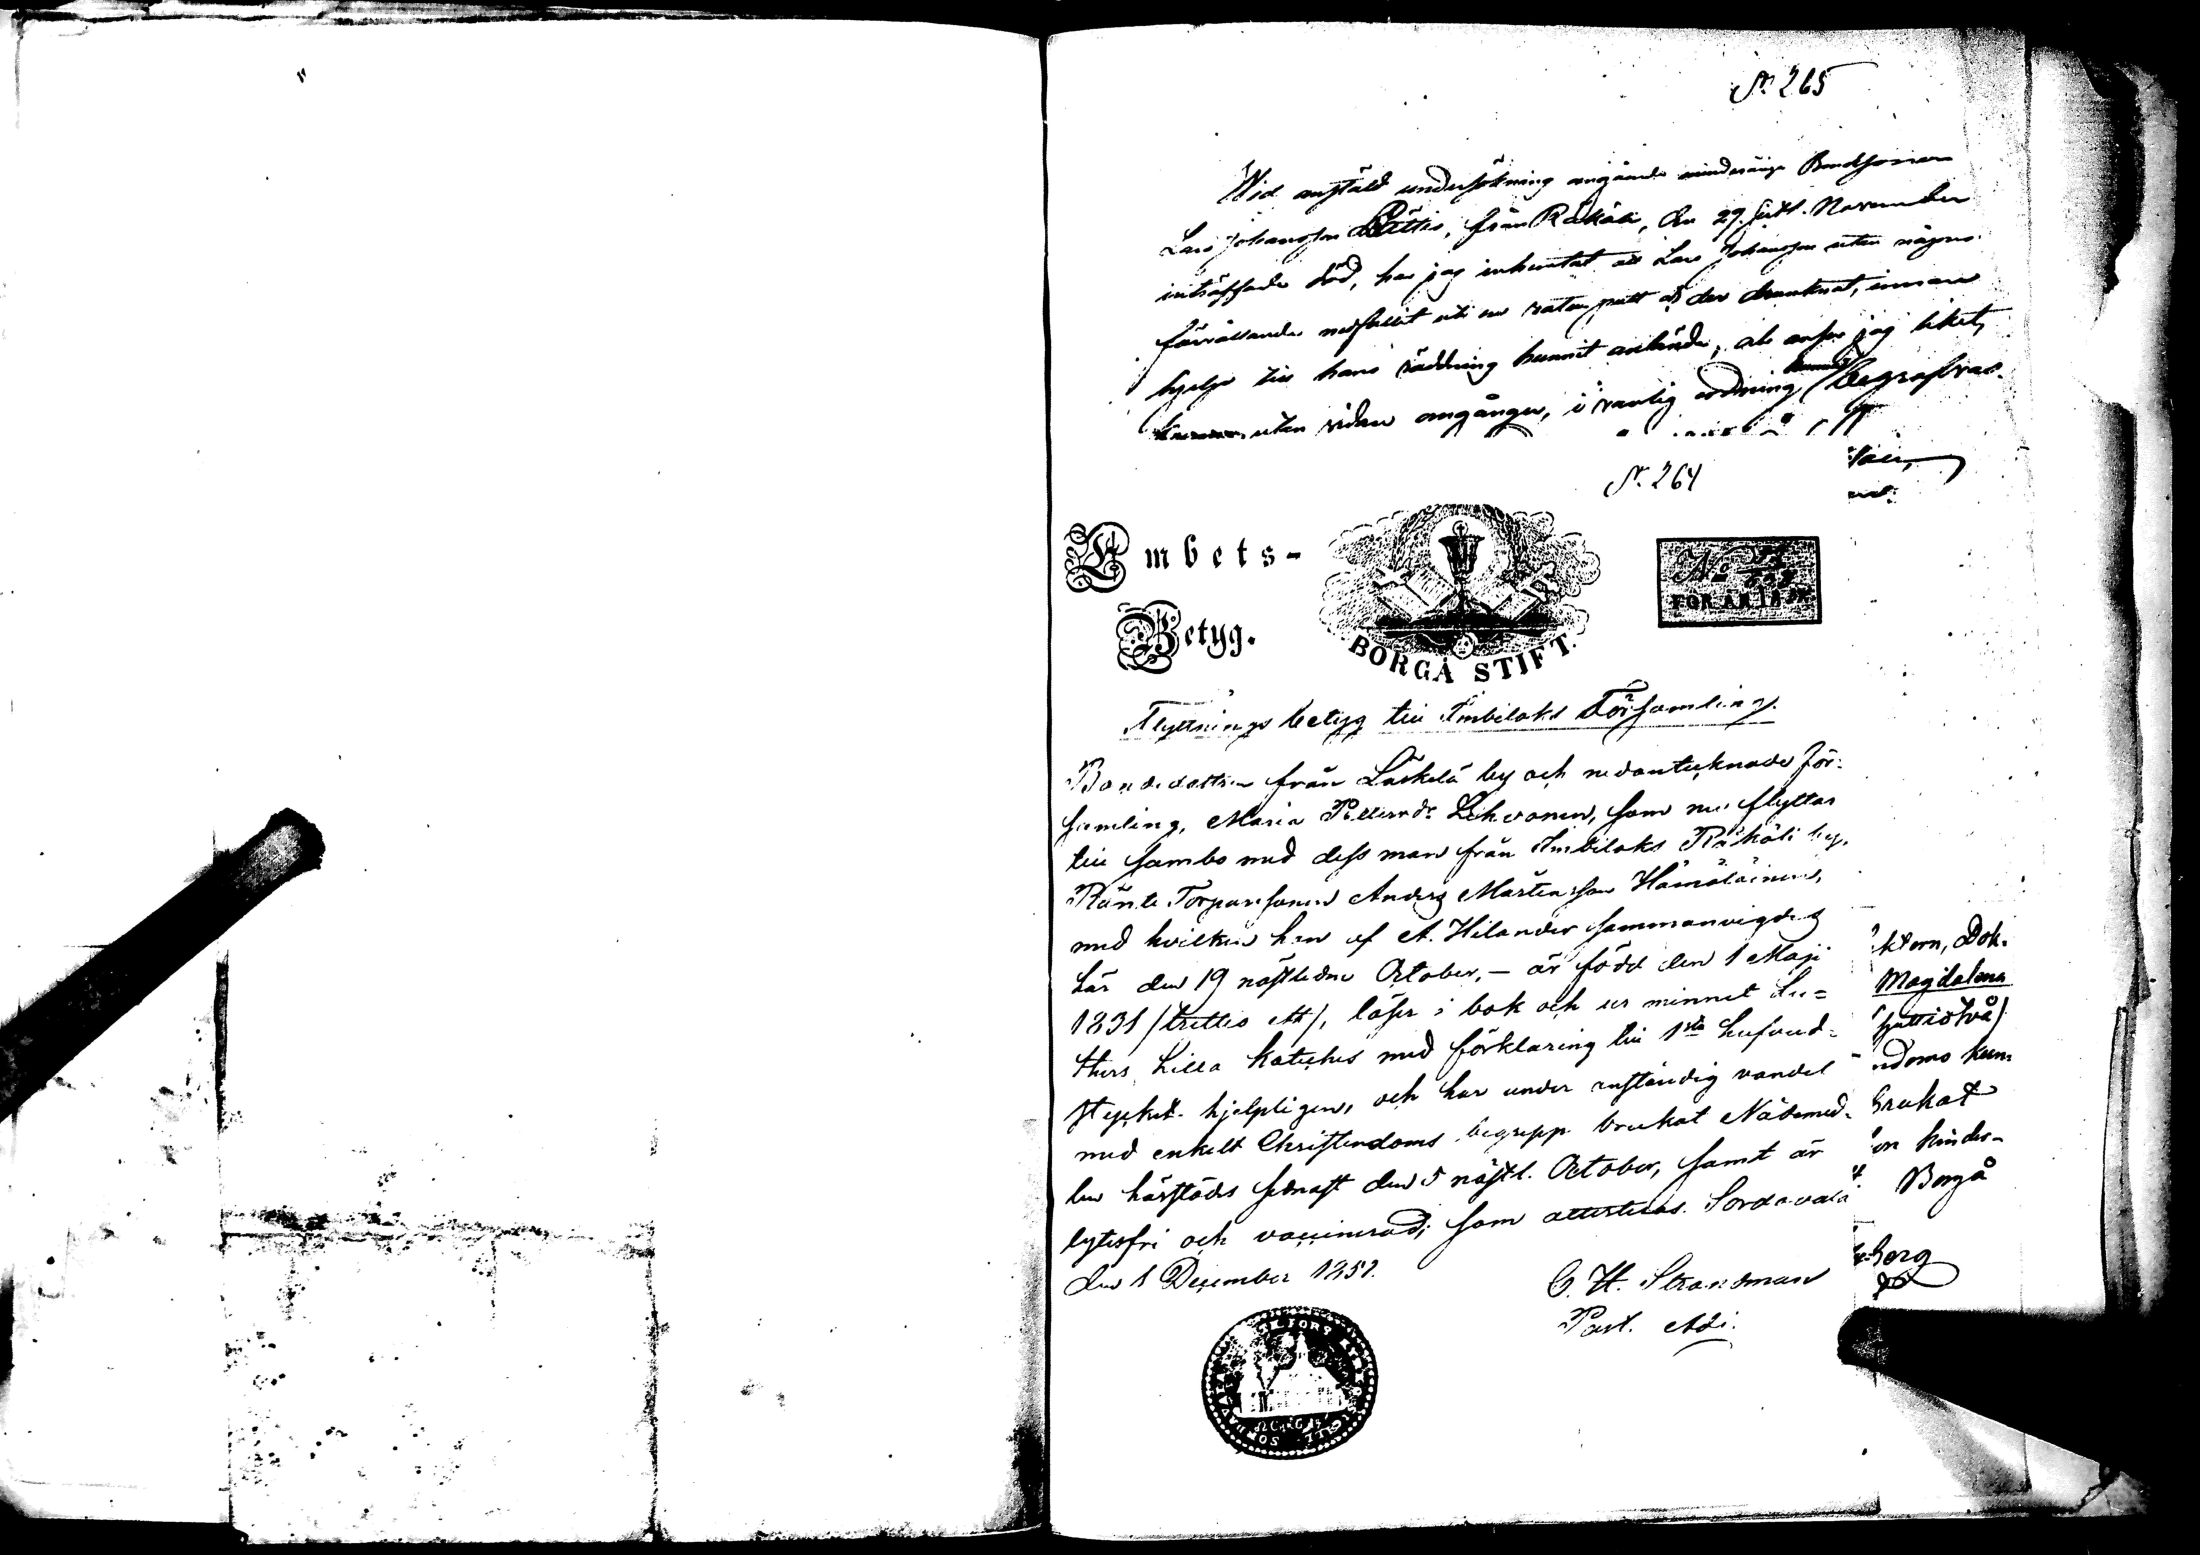 N:o 265
Wid anstäld undersökning angående minderårige Bondsonen
Lars Johansson Pättis, från Räkäli, den 29 sistl. November
inträffade död, har jag inhemtat att Lars Johansson utan någons
förvållande nedfallit uti en vatten putt og der drunknat, innan
hjelp till hans räddning hunnit anlända, alt anser jag liket,
utan vidare omgånger, i vanlig ordning kunna begrafvas.
N:o 264
Embets-
Betyg.
BORGÅ STIFT.
No
FÖR ÅR 18
Flyttnings betyg till Imbilaks Församling.
Bondedottren från Läskelä by och nedantecknade för-
samling, Maria Pettersdr Lehvonen, som nu flyttar
till sambo med dess man från Imbilaks Räkäli by,
Ränte Torparesonen Anders Mårtensson Hämäläinen,
med hvilken hon af A. Hilander sammanvigdes
här den 19 nästledne October, - är född den 1 Maji
1831 /trettio ett/, läser i bok och ur minnet Lu=
thers Lilla Kateches med förklaring till 1sta hufvud-
stycket hjelpligen, och har under anständig vandel
med enkelt Christendoms begrepp brukat Nådemed-
len härstädes sednast den 5 nästl. October, samt är
lytesfri och vaccinerad; som attesteras. Sordavala
den 1 December 1851.
C. H. Strandman
Past. Adj.
ktorn, Dok.
Magdalena
/tjuttiotvå/
ndoms kun-
brukat
en hinder-
Borgå
berg